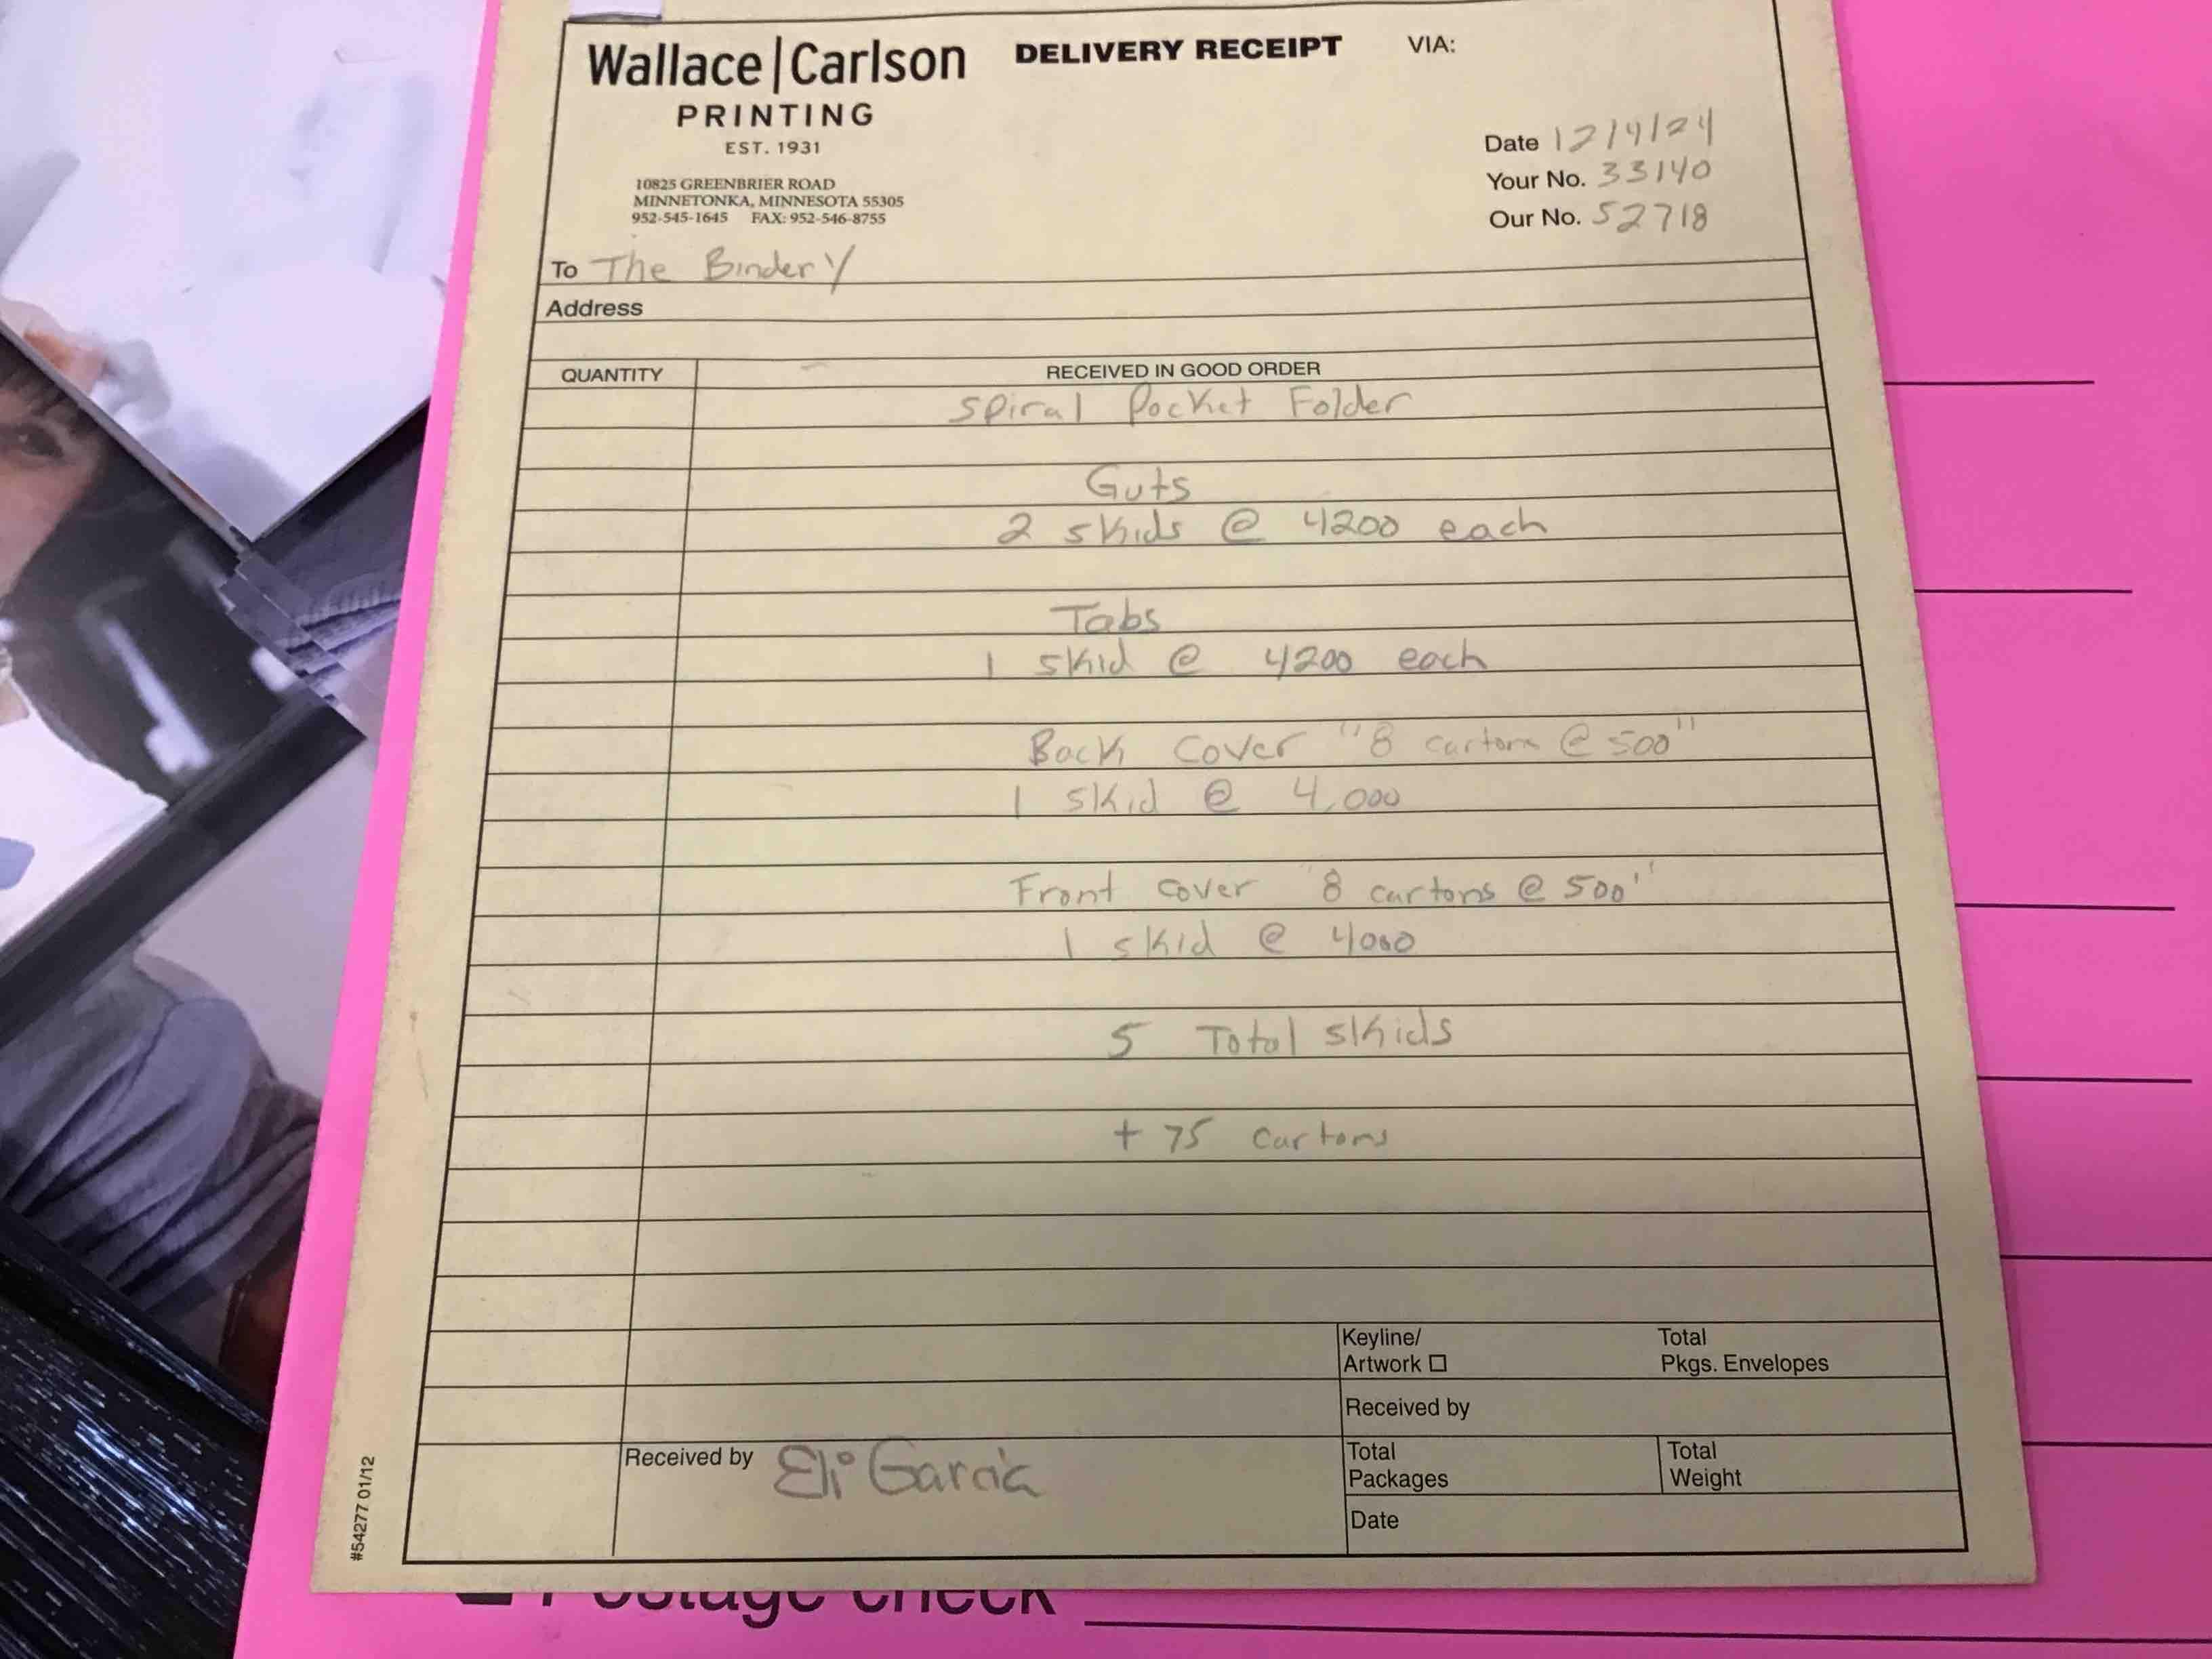 Wallace|Carlson DELIVERY RECEIPT VIA:
PRINTING
EST. 1931
10825 GREENBRIER ROAD
MINNETONKA, MINNESOTA 55305
952-545-1645 FAX: 952-546-8755
Date 12/4/24
Your No. 33140
Our No. 52718
To The Bindery
Address
QUANTITY RECEIVED IN GOOD ORDER
Spiral Pocket Folder
Guts
2 skids @ 4200 each
Tabs
1 skid @ 4200 each
Back Cover "8 cartons @ 500"
1 skid @ 4,000
Front Cover "8 cartons @ 500"
1 skid @ 4000
5 Total skids
+ 75 cartons
Keyline/
Artwork ☐
Total
Pkgs. Envelopes
Received by
Received by Eli Garcia
Total
Packages
Total
Weight
Date
#54277 01/12
Postage check